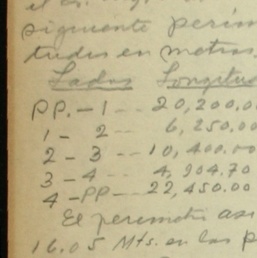 siguiente perím
tudes en metros.
Lados Longitud
PP.-1 -- 20,200.0
1 - 2 -- 6,250.00
2 - 3 -- 10,400.00
3 - 4 -- 4,904.70
4 - PP -- 22,450.00
El perimetro así
16.05 Mts. en las p